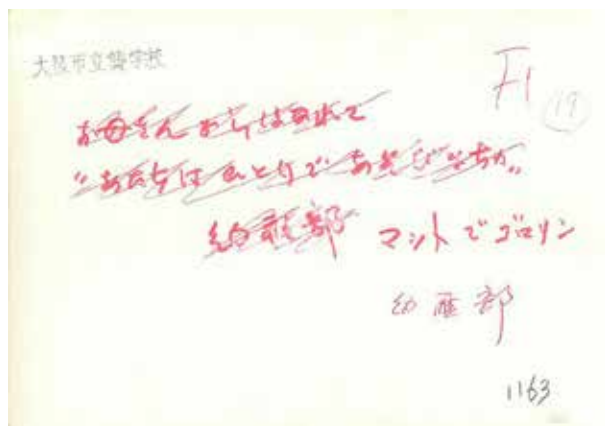 大阪市立聾学校
F1
19
お母さんからはなれて
ひとりであそび
幼稚部 マットでゴロリン
幼稚部
1163